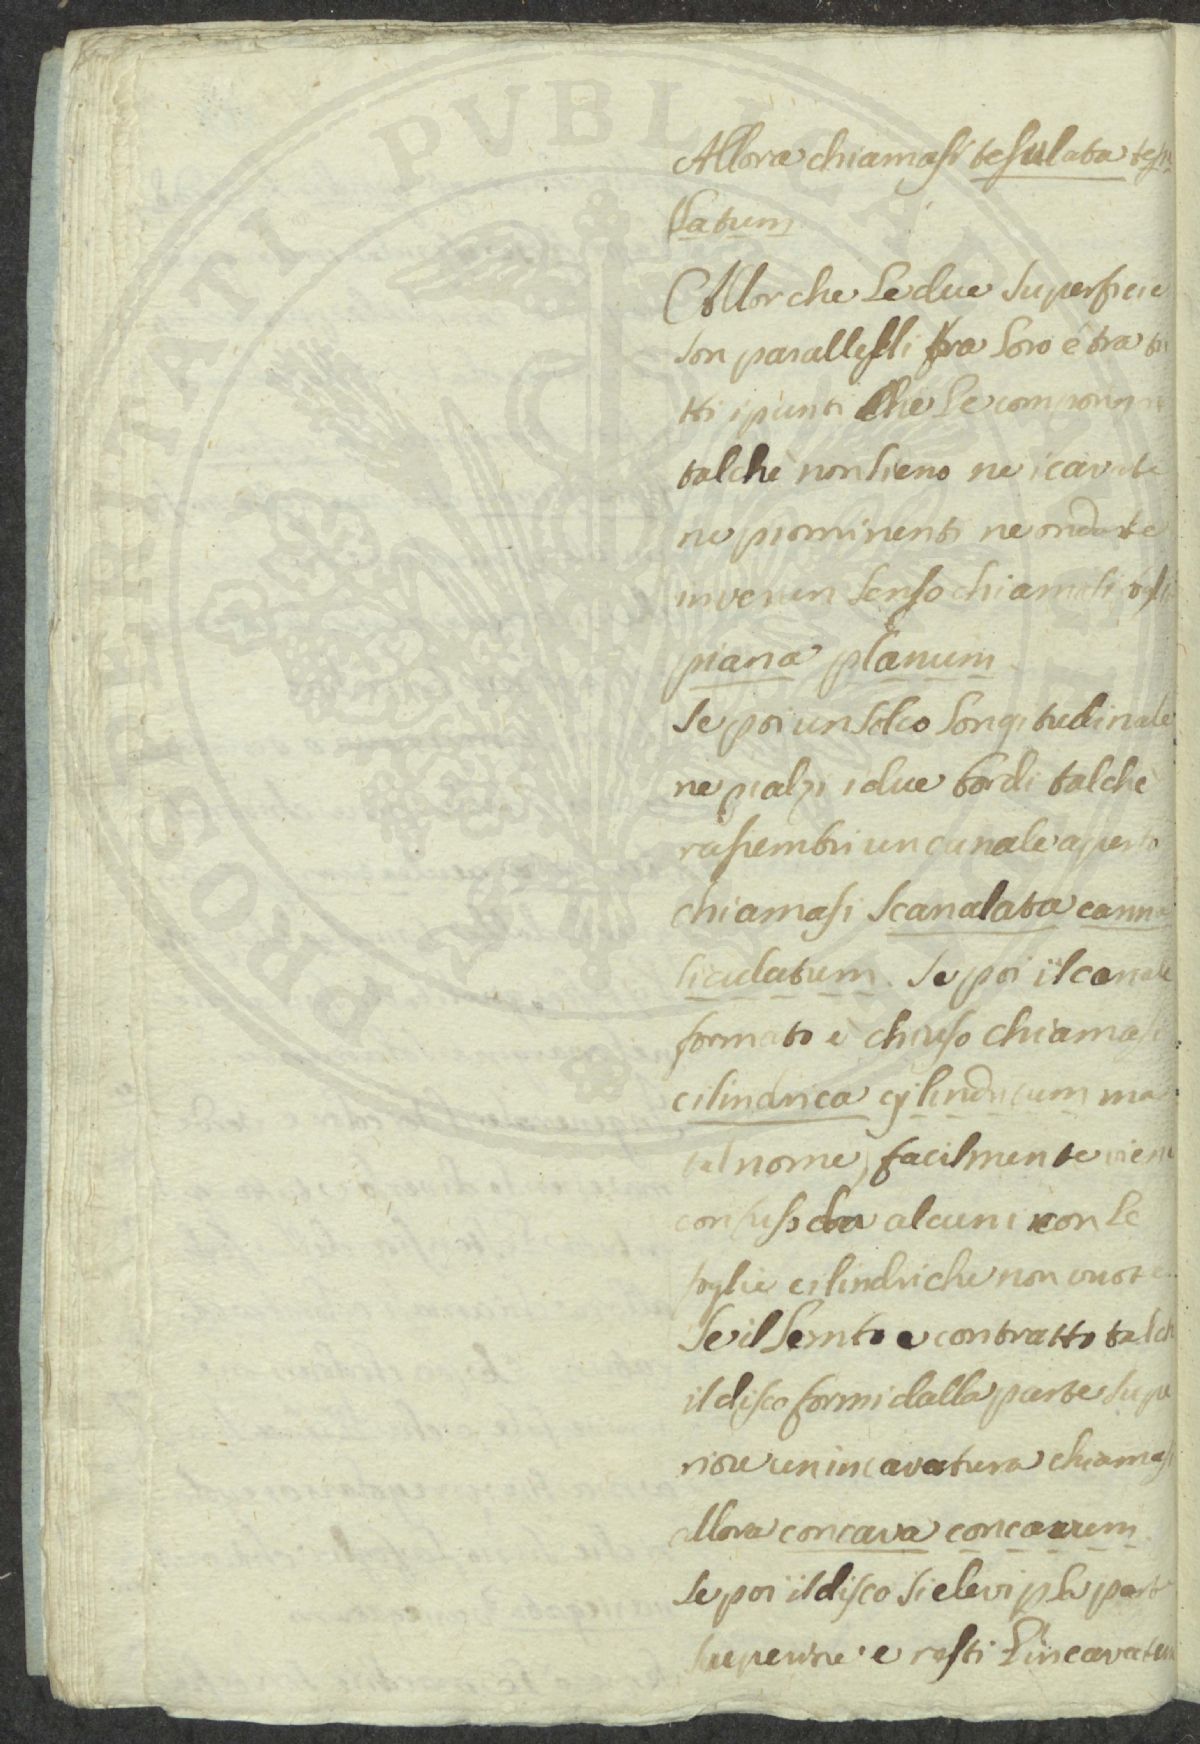 Allora chiamasi tesulata tesu
latum
Allorche le due superficie
son parallelli fra loro e tra tu
tti i punti che le compong
talchè non sieno ne icavate
ne prominenti ne ondate
in verun senso chiamasi
piana planum
Se poi un solco longitudinale
ne rialzi i due bordi talchè
rassembri un canale aperto
chiamasi scanalata canna
liculatum. Se poi il canale
formato è chiuso chiamasi
cilindrica cylindricum ma
tal nome facilmente viene
confuso da alcuni con le
foglie cilindriche non vuote
Se il lembo e contratto talch
il disco formi dalla parte supe
riore un incavatura chiamasi
allora concava concavum.
Se poi il disco si elevi p la parte
superiore e resti l'incavatura
PROSPERITATI PVBLICAE